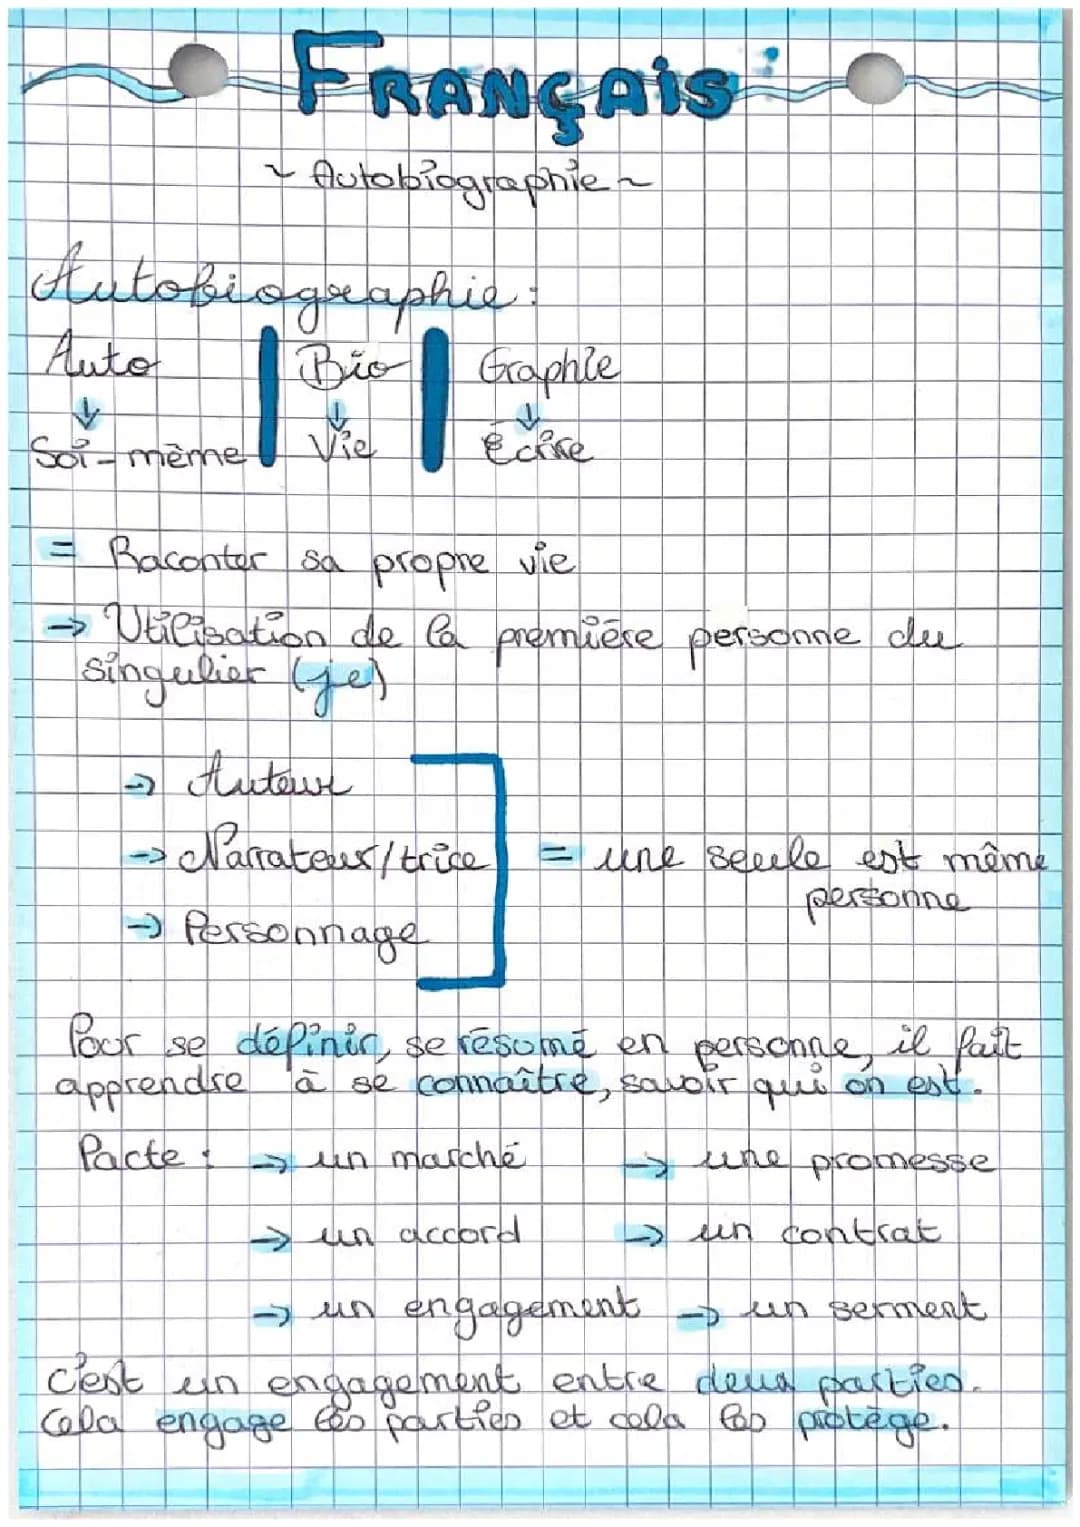 FRANÇAIS
~ Autobiographie ~
Autobiographie :
Auto | Bio | Graphie
↓ ↓ ↓
Soi-même Vie Écrire
= Raconter sa propre vie
→ Utilisation de la première personne du
singulier (je)
→ Auteur
→ Narrateur/trice = une seule est même
personne
→ Personnage
Pour se définir, se résumé en personne, il fait
apprendre à se connaître, savoir qui on est.
Pacte : → un marché → une promesse
→ un accord → un contrat
→ un engagement → un serment
C'est un engagement entre deux parties.
Cela engage les parties et cela les protège.